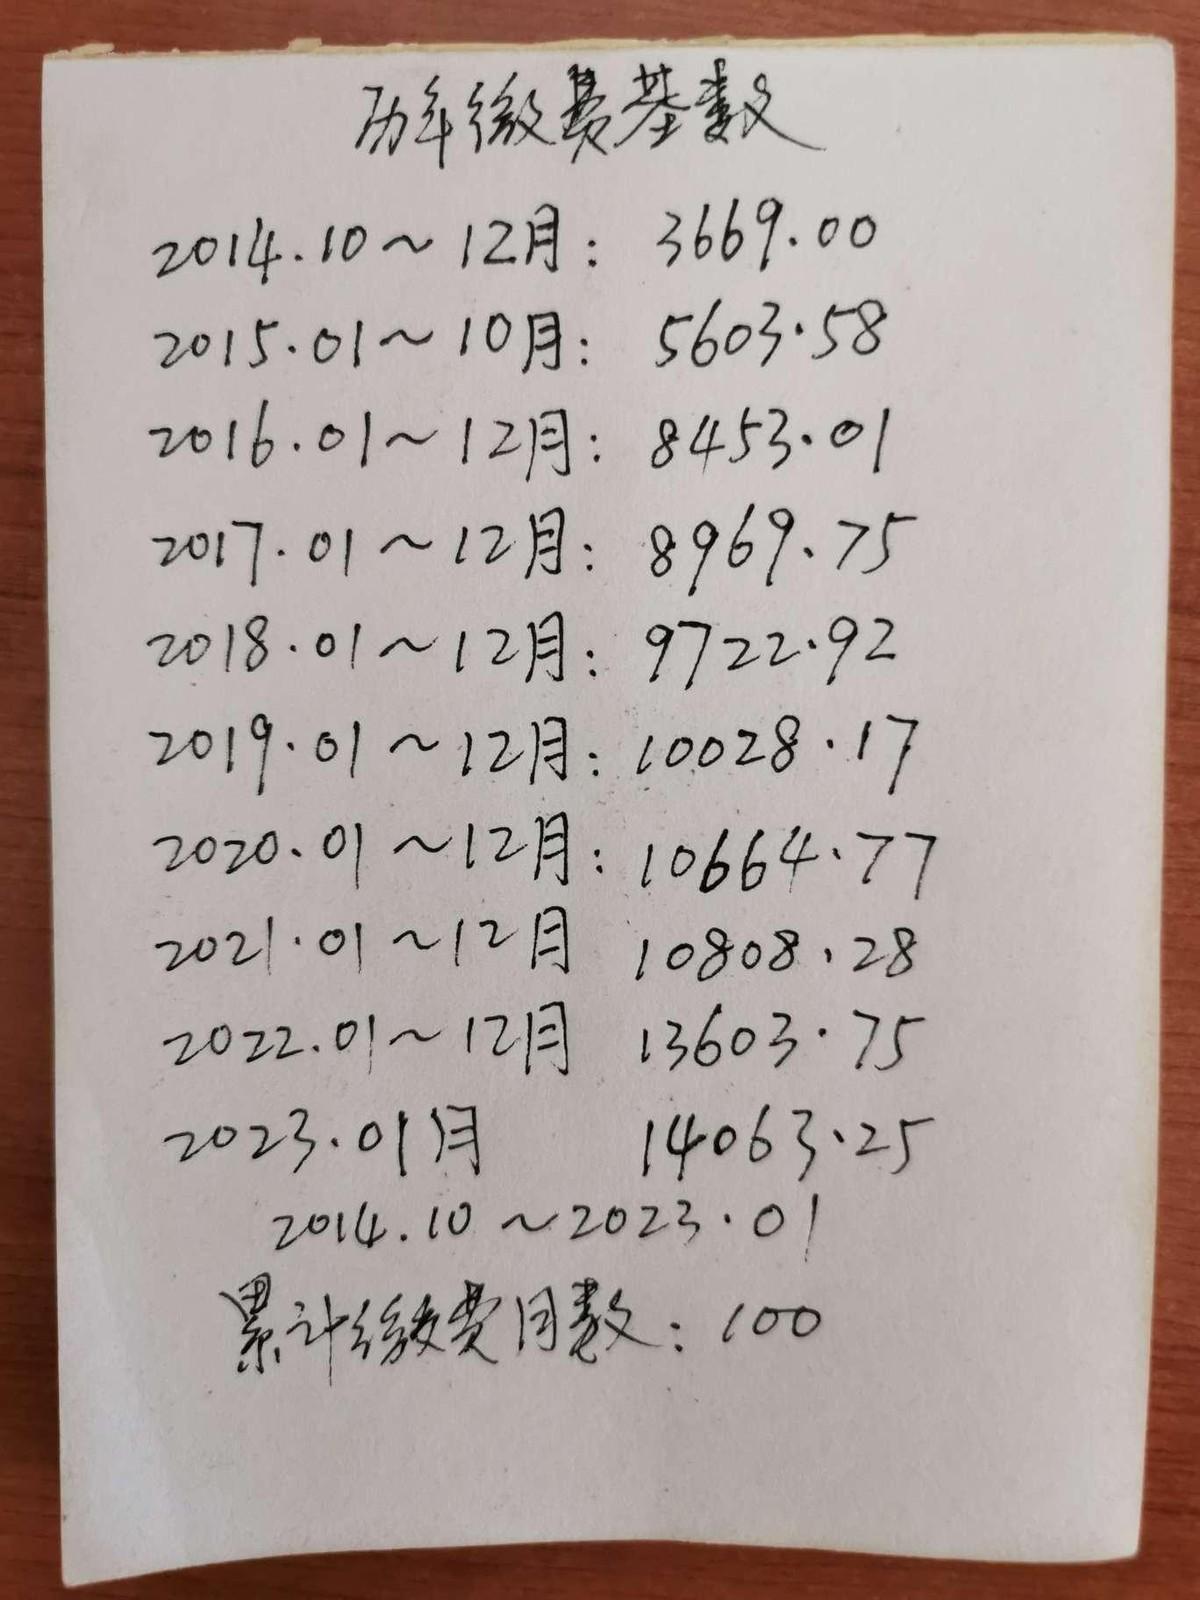 历年缴费基数
2014.10～12月: 3669.00
2015.01～10月: 5603.58
2016.01～12月: 8453.01
2017.01～12月: 8969.75
2018.01～12月: 9722.92
2019.01～12月: 10028.17
2020.01～12月: 10664.77
2021.01～12月 10808.28
2022.01～12月 13603.75
2023.01月 14063.25
2014.10～2023.01
累计缴费月数: 100